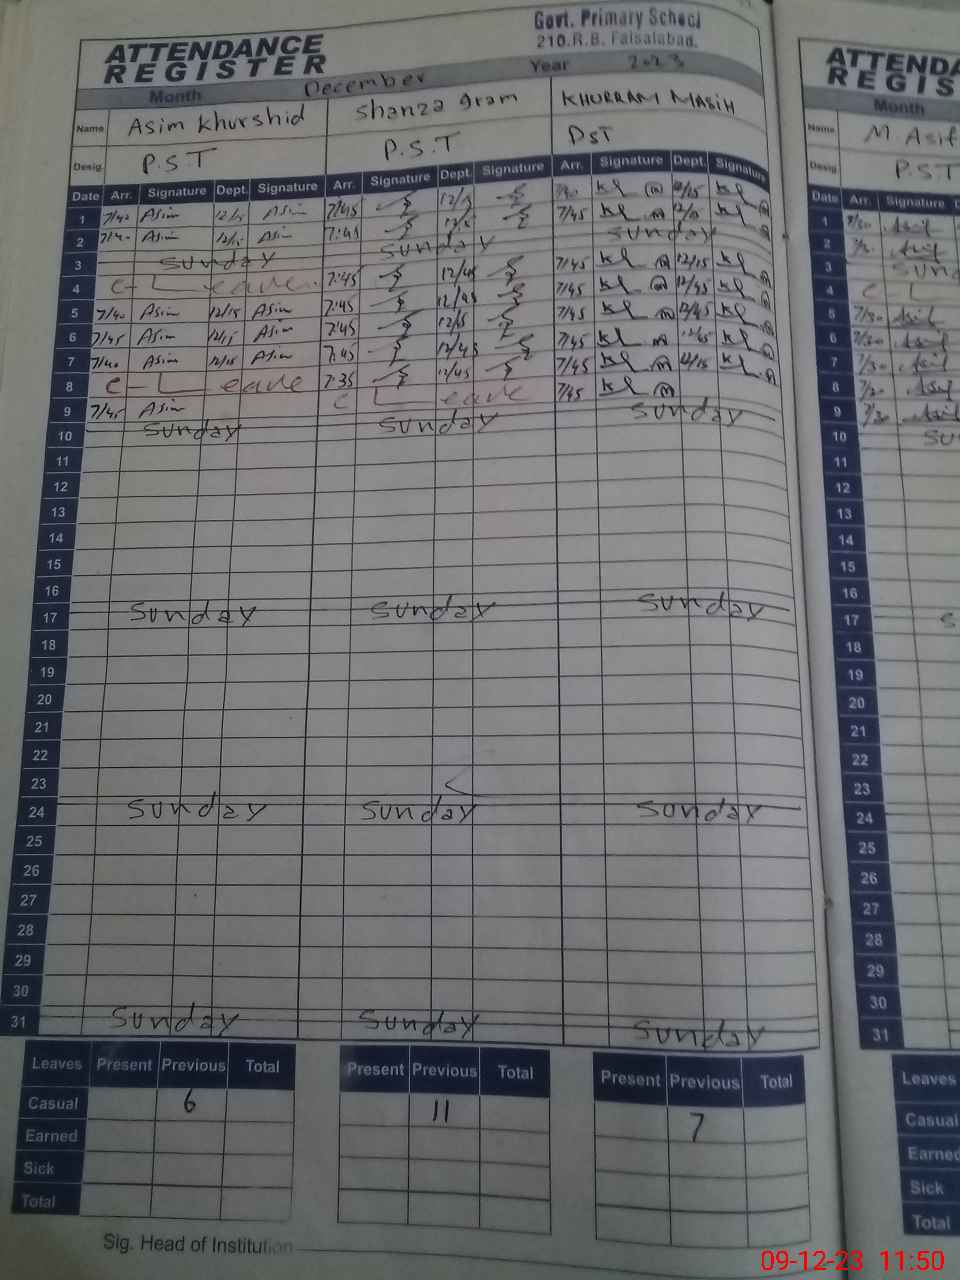 Govt. Primary School
210.R.B. Faisalabad.
ATTENDANCE
REGISTER
Month December Year 2023
Name Asim Khurshid Shanza gram KHURRAM MASIH
Desig. P.S.T P.S.T PST
Date Arr. Signature Dept. Signature Arr. Signature Dept. Signature Arr. Signature Dept. Signature
1 7/40 Asim 12/15 Asim 7/45
2 7/40 Asim 12/15 Asim 7:45 7/45
3 Sunday Sunday Sunday
4 C-Leave. 7:45 12/45 7/45 12/15
5 7/40 Asim 12/15 Asim 7:45 12/45 7/45 12/45
6 7/45 Asim 12/15 Asim 7:45 12/15 7/45 12/45
7 7/40 Asim 12/15 Asim 7:45 12/45 7/45
8 C-Leave 7:35 12/45 7/45 12/15
9 7/45 Asim C Leave 7/45
10 Sunday Sunday Sunday
11
12
13
14
15
16
17 Sunday Sunday Sunday
18
19
20
21
22
23
24 Sunday Sunday Sunday
25
26
27
28
29
30
31 Sunday Sunday Sunday
Leaves Present Previous Total Present Previous Total Present Previous Total
Casual 6 11 7
Earned
Sick
Total
Sig. Head of Institution
ATTENDA
REGIS
Month
Name M. Asif
Desig P.S.T
Date Arr. Signature
1
2
3 Sund
4 C L
5 7/30
6 7/30
7 7/30
8 7/30
9 7/30
10 SU
11
12
13
14
15
16
17 S
18
19
20
21
22
23
24
25
26
27
28
29
30
31
Leaves
Casual
Earned
Sick
Total
09-12-23 11:50